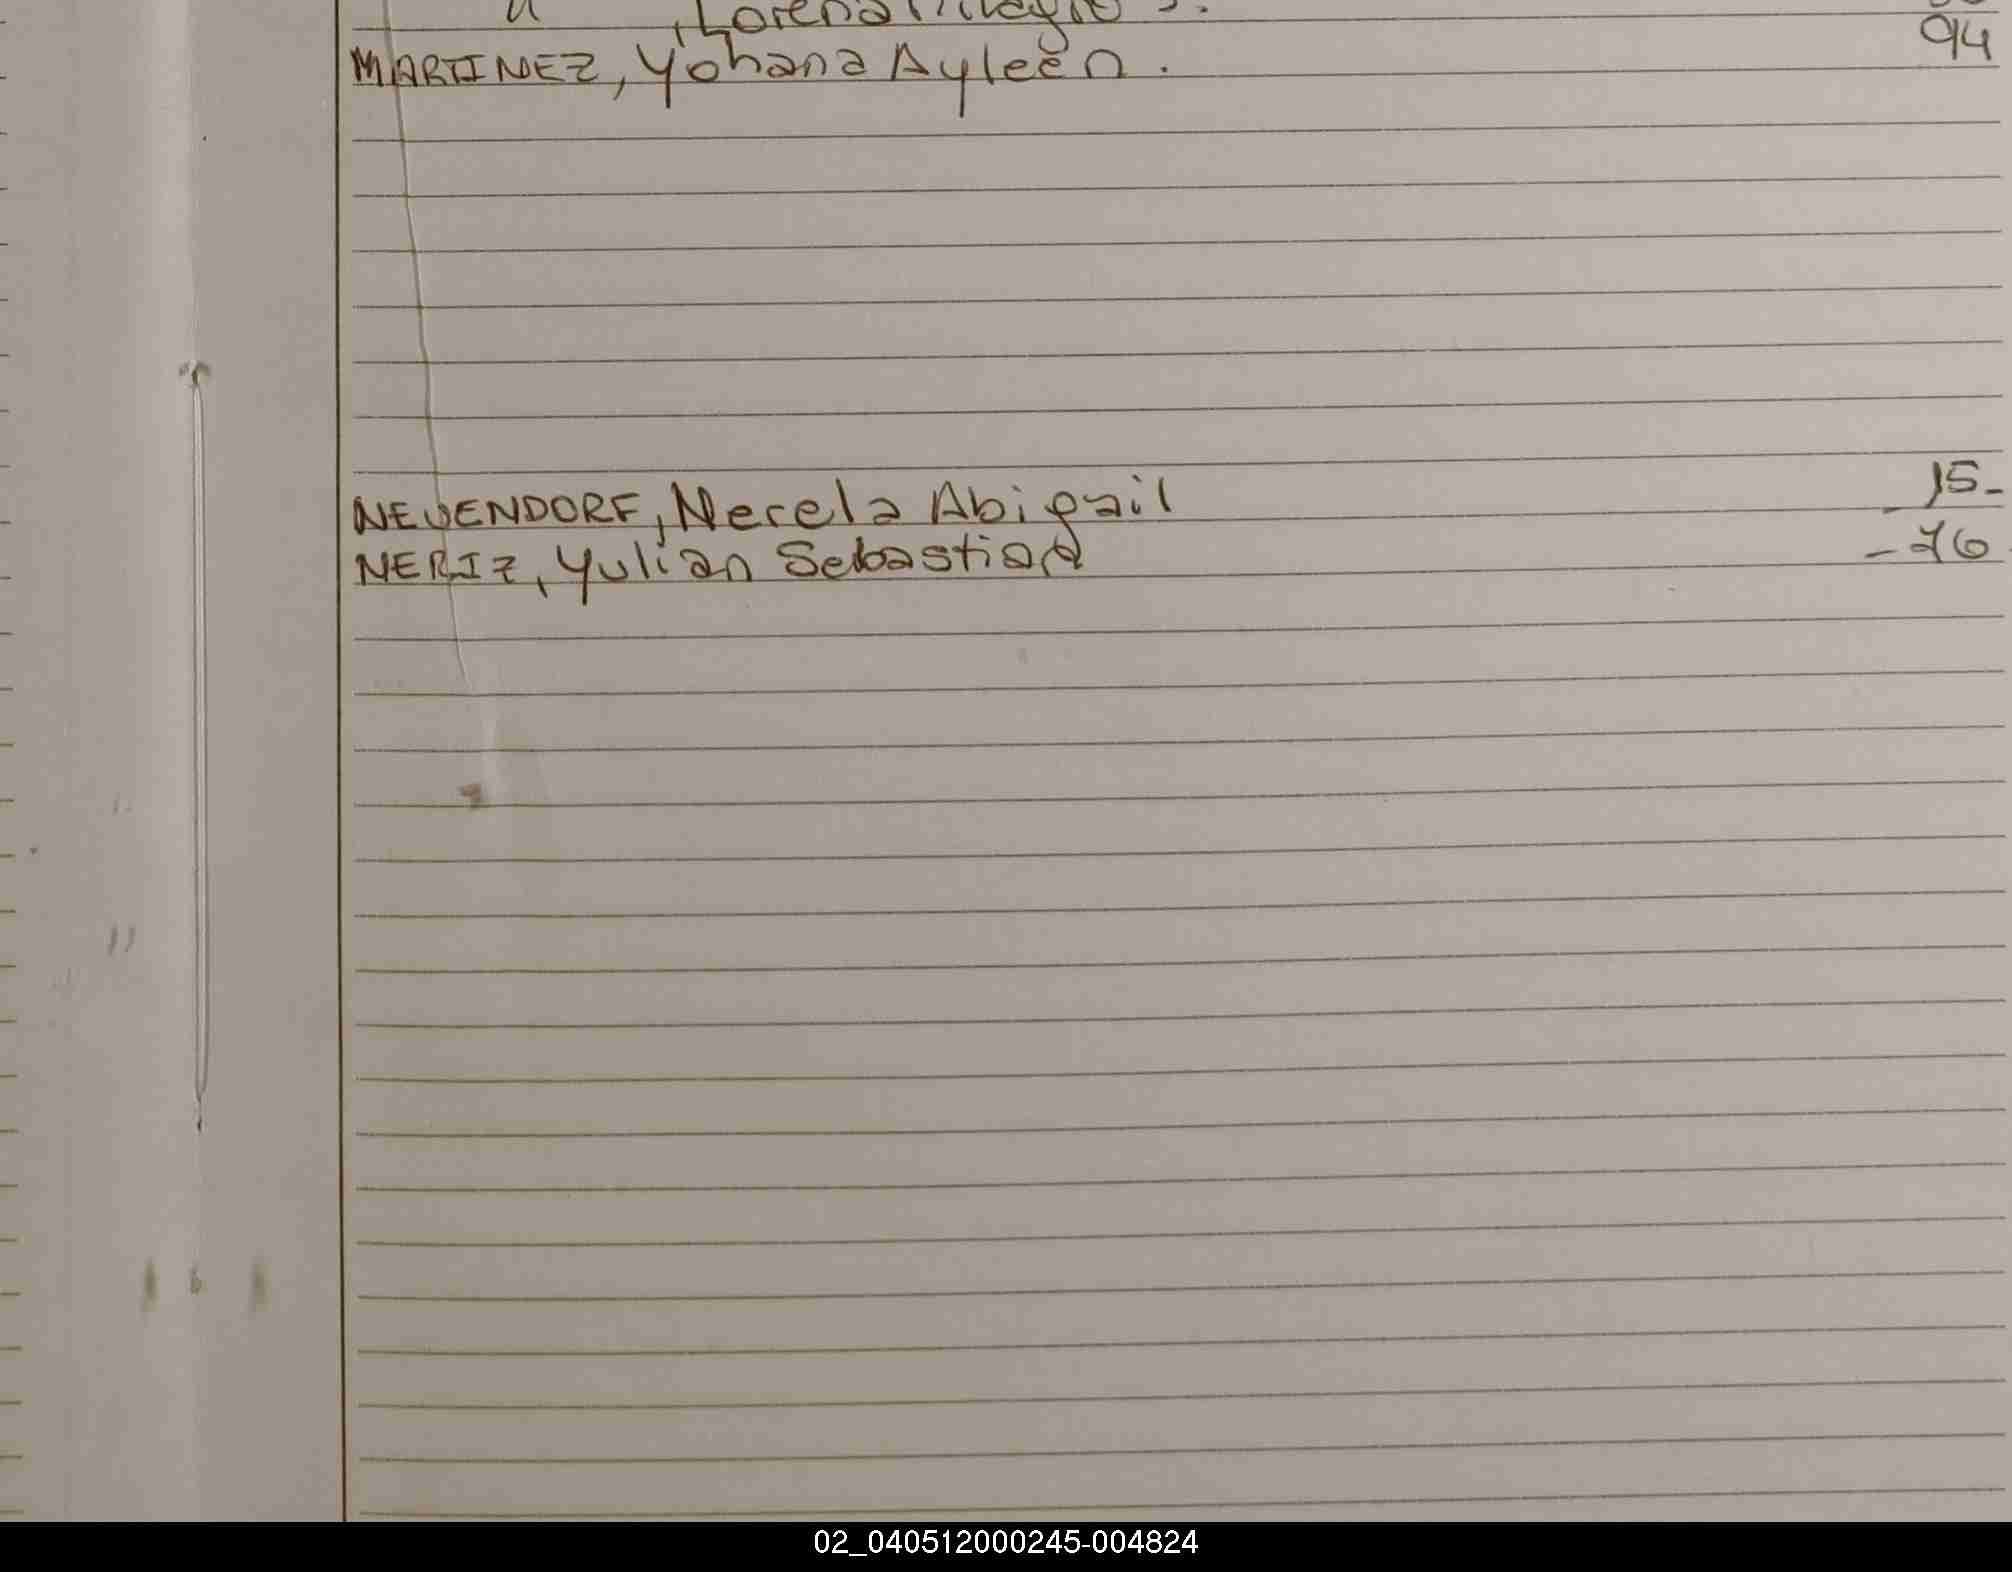 " , Lorena
MARTINEZ, Yohana Ayleén. 94
NEUENDORF, Nerela Abigail 15-
NERIZ, Yulian Sebastian -76.
02_040512000245-004824